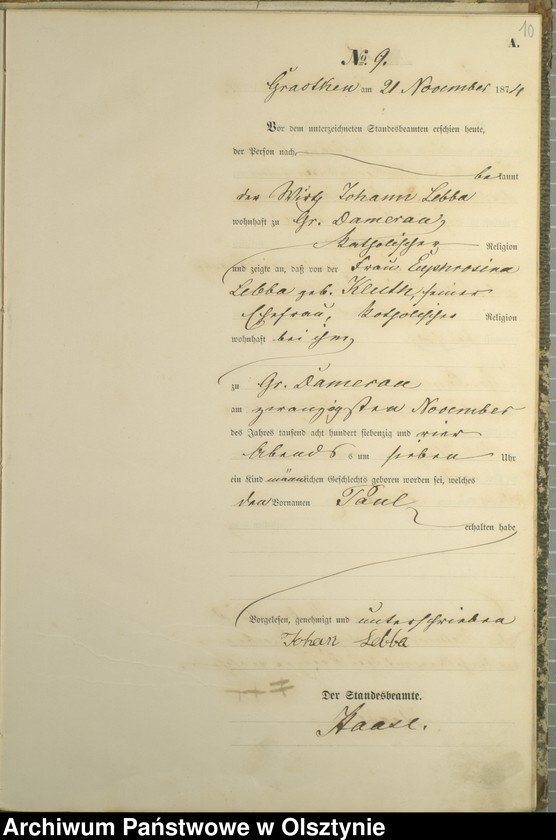 10
A.
No. 9.
am 21 November 1874
Vor dem unterzeichneten Standesbeamten erschien heute,
der Person nach
bekannt
der Wirth Johann Lebba
wohnhaft zu Gr. Damerau
katholischer Religion
und zeigte an, daß von der Frau Euphrosina
Lebba geb. Kluth, seiner
Ehefrau, katholischer Religion
wohnhaft bei ihm
zu Gr. Damerau
am zwanzigsten November
des Jahres tausend acht hundert siebenzig und vier
Abends um sieben Uhr
ein Kind männlichen Geschlechts geboren worden sei, welches
den Vornamen Paul
erhalten habe
Vorgelesen, genehmigt und unterschrieben
Johan Lebba
Der Standesbeamte.
Haase.
Archiwum Państwowe w Olsztynie